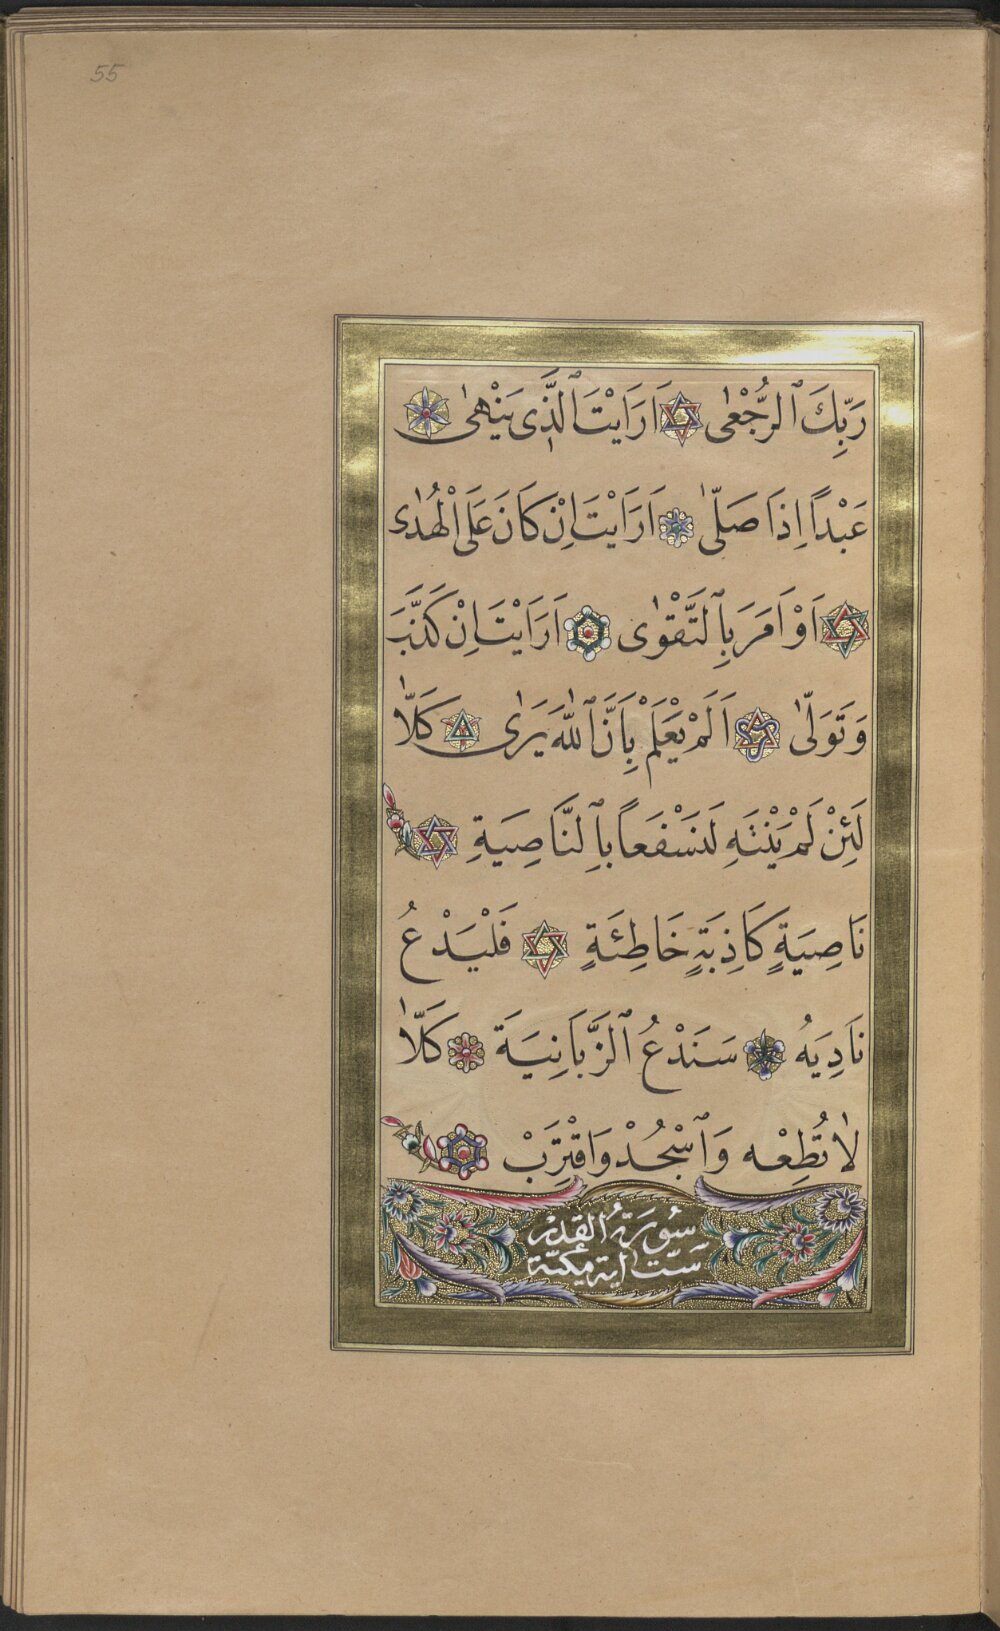 55
رَبِّكَ ٱلرُّجْعٰى اَرَاَيْتَ ٱلَّذٖى يَنْهٰى
عَبْدًا اِذَا صَلّٰى اَرَاَيْتَ اِنْ كَانَ عَلَى ٱلْهُدٰى
اَوْ اَمَرَ بِٱلتَّقْوٰى اَرَاَيْتَ اِنْ كَذَّبَ
وَتَوَلّٰى اَلَمْ يَعْلَمْ بِاَنَّ ٱللّٰهَ يَرٰى كَلَّا
لَئِنْ لَمْ يَنْتَهِ لَنَسْفَعًا بِٱلنَّاصِيَةِ
نَاصِيَةٍ كَاذِبَةٍ خَاطِئَةٍ فَلْيَدْعُ
نَادِيَهُ سَنَدْعُ ٱلزَّبَانِيَةَ كَلَّا
لَا تُطِعْهُ وَٱسْجُدْ وَاقْتَرِبْ
سُورَةُ القَدْرِ
سِتّ اٰية مكيّة